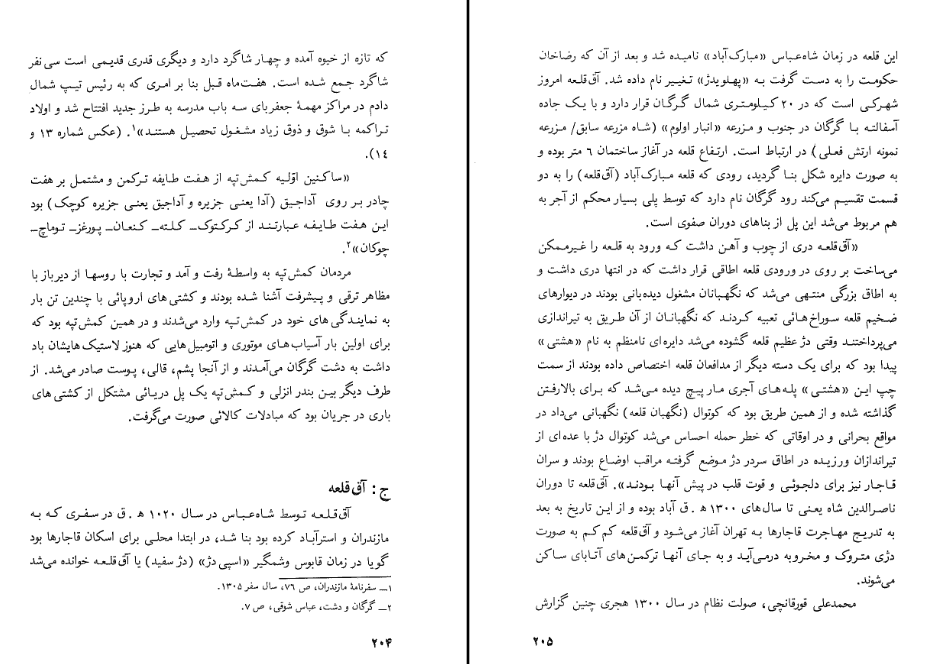 که تازه از خیوه آمده و چهار شاگرد دارد و دیگری قدری قدیمی است سی نفر
شاگرد جمع شده است. هفت‌ماه قبل بنا بر امری که به رئیس تیپ شمال
دادم در مراکز مهمهٔ جعفربای سه باب مدرسه به طرز جدید افتتاح شد و اولاد
تراکمه با شوق و ذوق زیاد مشغول تحصیل هستند»۱. (عکس شماره ۱۳ و
۱۴).
«ساکنین اوّلیه کمش‌تپه از هفت طایفه ترکمن و مشتمل بر هفت
چادر بر روی آداجیق (آدا یعنی جزیره و آداجیق یعنی جزیره کوچک) بود
این هفت طایفه عبارتند از کرکتوک_ کلته_ کنعان_ پورغز_ توماچ_
چوکان»۲.
مردمان کمش‌تپه به واسطهٔ رفت و آمد و تجارت با روسها از دیرباز با
مظاهر ترقی و پیشرفت آشنا شده بودند و کشتی های اروپائی با چندین تن بار
به نمایندگی های خود در کمش‌تپه وارد می‌شدند و در همین کمش‌تپه بود که
برای اولین بار آسیاب های موتوری و اتومبیل‌هایی که هنوز لاستیک هایشان باد
داشت به دشت گرگان می‌آمدند و از آنجا پشم، قالی، پوست صادر می‌شد. از
طرف دیگر بین بندر انزلی و کمش‌تپه یک پل دریائی مشتکل از کشتی های
باری در جریان بود که مبادلات کالائی صورت می‌گرفت.
ج : آق‌قلعه
آق‌قلعه توسط شاه‌عباس در سال ۱۰۲۰ ه‍ . ق در سفری که به
مازندران و استرآباد کرده بود بنا شد، در ابتدا محلی برای اسکان قاجارها بود
گویا در زمان قابوس وشمگیر «اسپی دژ» (دژ سفید) یا آق‌قلعه خوانده می‌شد
۱_ سفرنامهٔ مازندران، ص ۷۶، سال سفر ۱۳۰۵.
۲_ گرگان و دشت، عباس شوقی، ص ۷.
۲۰۴
این قلعه در زمان شاه‌عباس «مبارک‌آباد» نامیده شد و بعد از آن که رضاخان
حکومت را به دست گرفت به «پهلویدژ» تغییر نام داده شد. آق‌قلعه امروز
شهرکی است که در ۲۰ کیلومتری شمال گرگان قرار دارد و با یک جاده
آسفالته با گرگان در جنوب و مزرعه «انبار اولوم» (شاه مزرعه سابق/ مزرعه
نمونه ارتش فعلی) در ارتباط است. ارتفاع قلعه در آغاز ساختمان ۶ متر بوده و
به صورت دایره شکل بنا گردید، رودی که قلعه مبارک‌آباد (آق‌قلعه) را به دو
قسمت تقسیم می‌کند رود گرگان نام دارد که توسط پلی بسیار محکم از آجر به
هم مربوط می‌شد این پل از بناهای دوران صفوی است.
«آق‌قلعه دری از چوب و آهن داشت که ورود به قلعه را غیرممکن
می‌ساخت بر روی در ورودی قلعه اطاقی قرار داشت که در انتها دری داشت و
به اطاق بزرگی منتهی می‌شد که نگهبانان مشغول دیده‌بانی بودند در دیوارهای
ضخیم قلعه سوراخ‌هائی تعبیه کردند که نگهبانان از آن طریق به تیراندازی
می‌پرداختند وقتی دژ عظیم قلعه گشوده می‌شد دایره‌ای نامنظم به نام «هشتی»
پیدا بود که برای یک دسته دیگر از مدافعان قلعه اختصاص داده بودند از سمت
چپ این «هشتی» پله‌های آجری مارپیچ دیده می‌شد که برای بالارفتن
گذاشته شده و از همین طریق بود که کوتوال (نگهبان قلعه) نگهبانی می‌داد در
مواقع بحرانی و در اوقاتی که خطر حمله احساس می‌شد کوتوال دژ با عده‌ای از
تیراندازان ورزیده در اطاق سردر دژ موضع گرفته مراقب اوضاع بودند و سران
قاجار نیز برای دلجوئی و قوت قلب در پیش آنها بودند». آق‌قلعه تا دوران
ناصرالدین شاه یعنی تا سال‌های ۱۳۰۰ ه‍ . ق آباد بوده و از این تاریخ به بعد
به تدریج مهاجرت قاجارها به تهران آغاز می‌شود و آق‌قلعه کم کم به صورت
دژی متروک و مخروبه درمی‌آید و به جای آنها ترکمن‌های آتابای ساکن
می‌شوند.
محمدعلی قورقانچی، صولت نظام در سال ۱۳۰۰ هجری چنین گزارش
۲۰۵